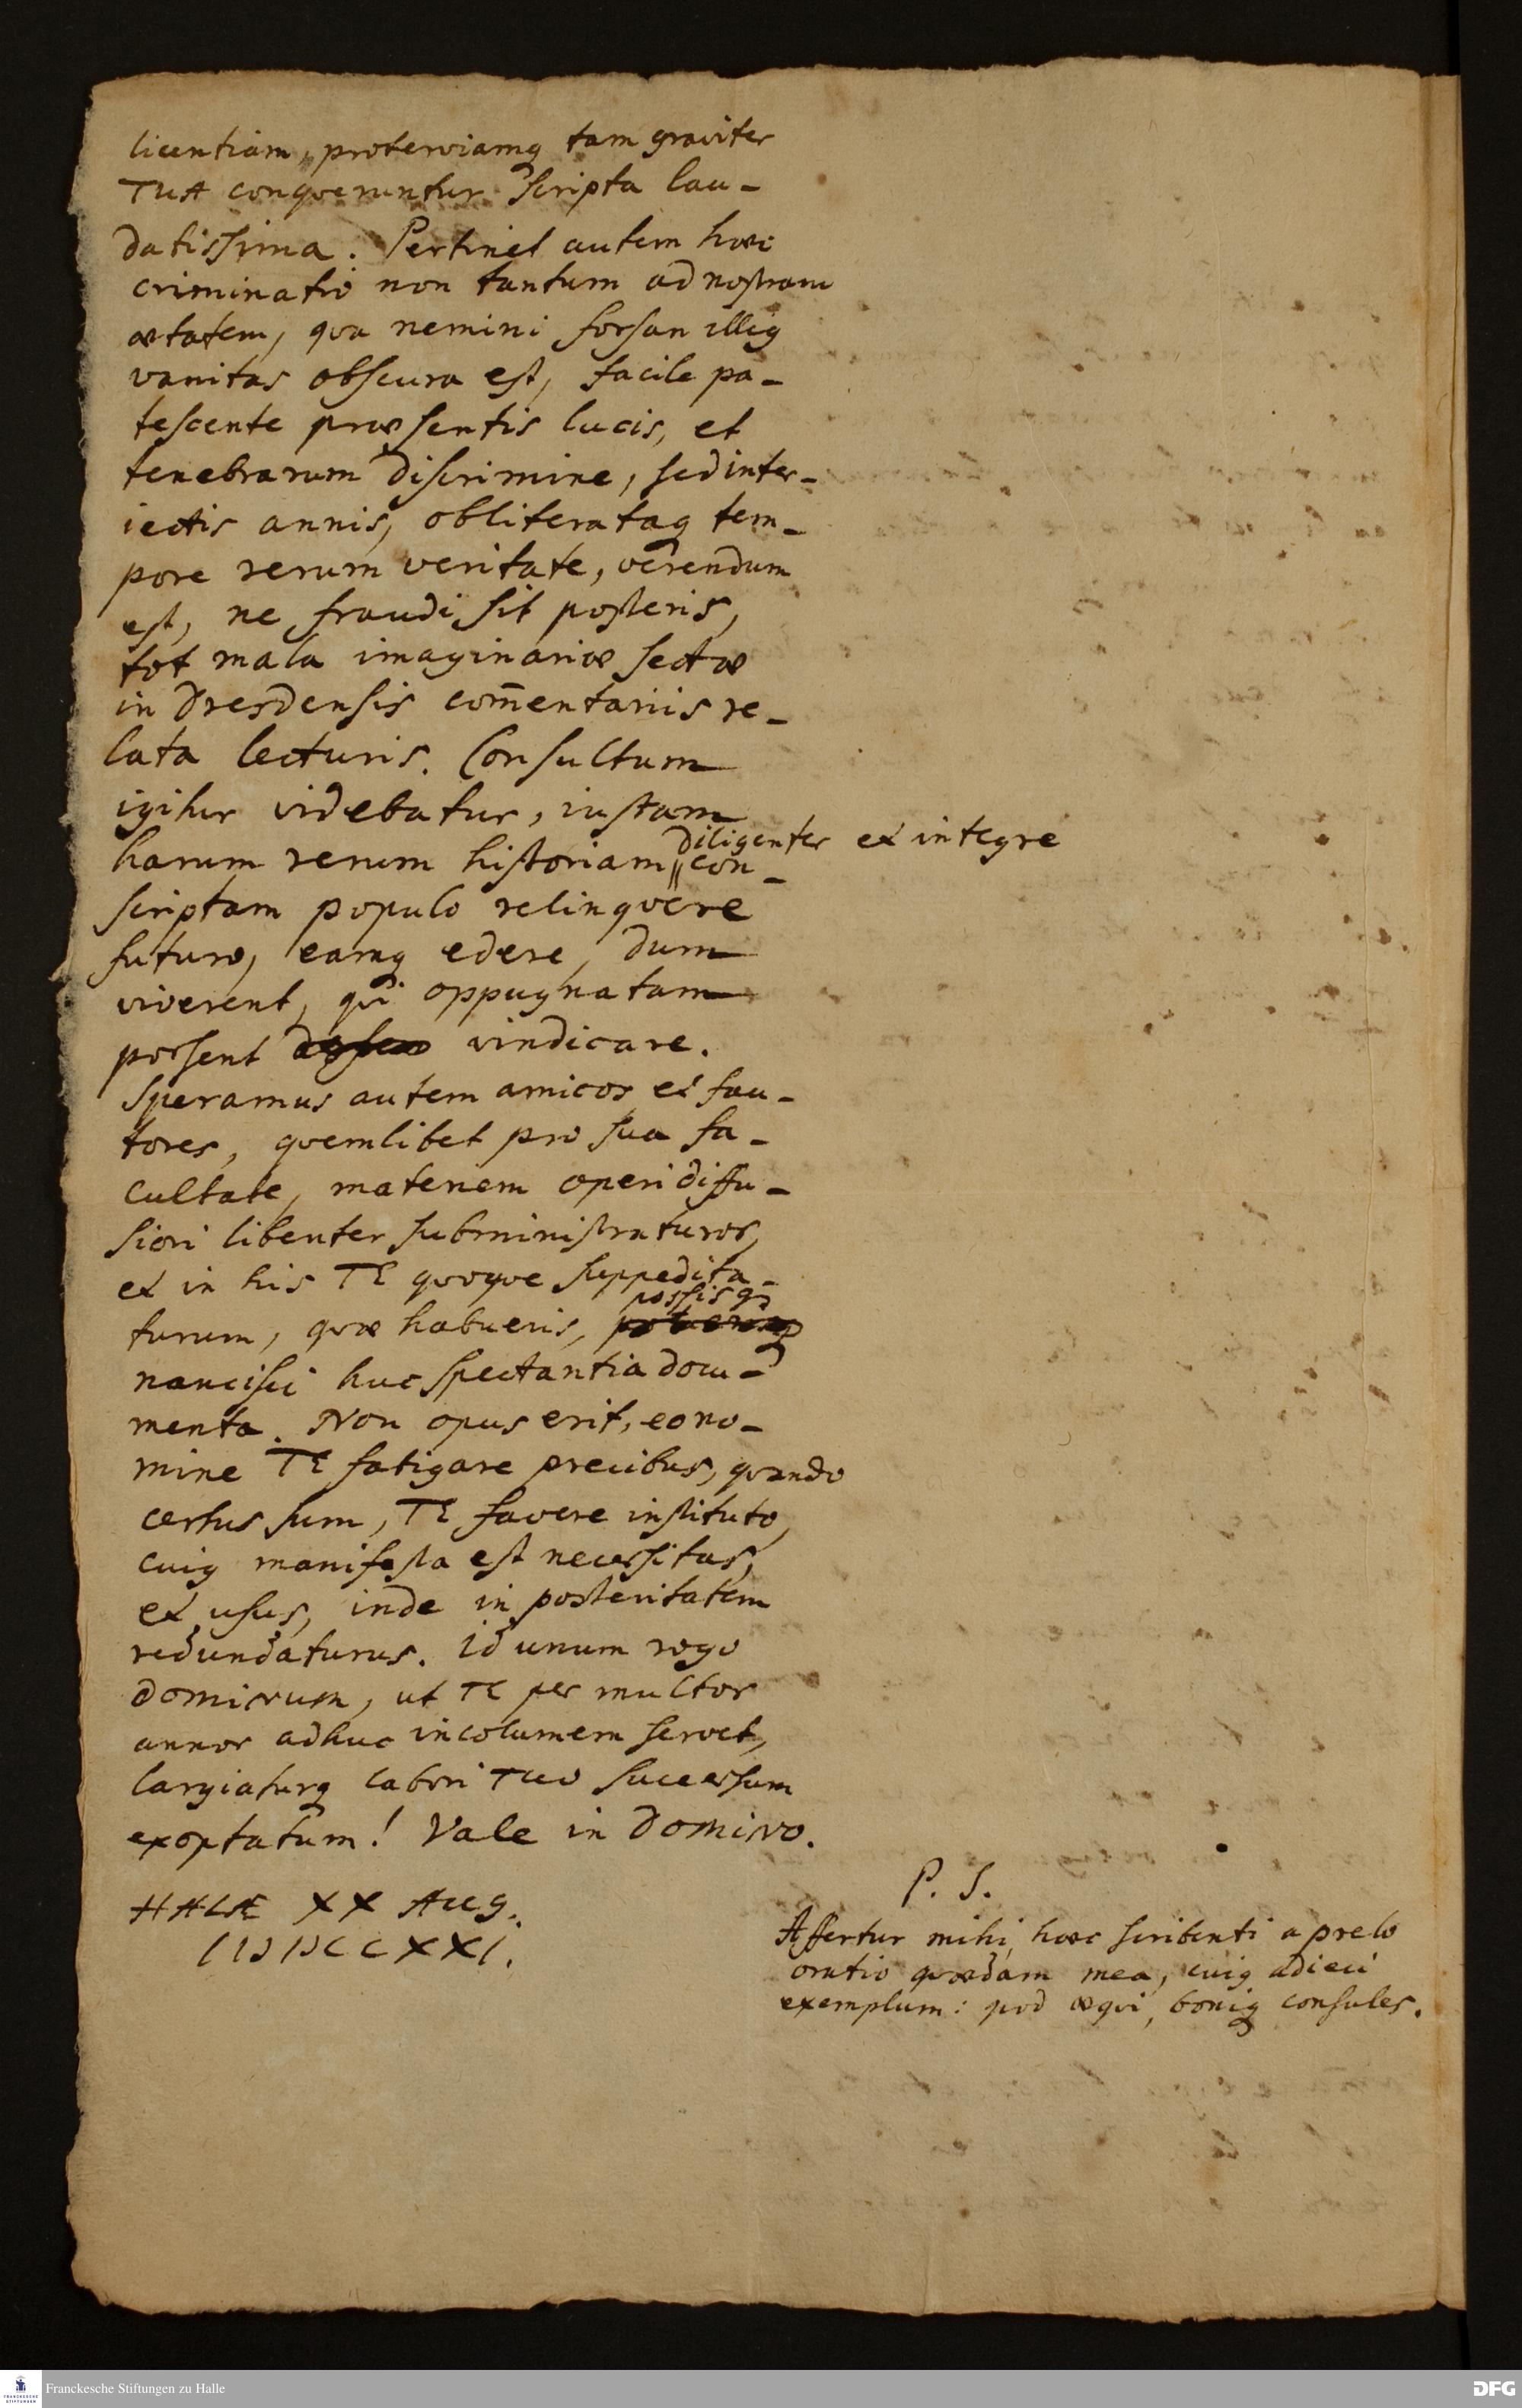 licentiam, proterviamq tam graviter
TUA conqveruntur scripta lau-
datissima. Pertinet autem haec
criminatio non tantum ad nostram
aetatem, qva nemini forsan illig
vanitas obscura est, facile pa-
tescente praesentis lucis, et
tenebrarum discrimine, sed inter-
iectis annis, obliterataq tem-
pore rerum veritate, verendum
est, ne fraudi sit posteris,
tot mala imaginariae sectae
in Dresdensis com̄entariis re-
lata lecturis. Consultum
igitur videbatur, iustam
diligenter et integre
harum rerum historiam || con-
scriptam populo relinqvere
futuro, eamq edere, dum
viverent, qvi oppugnatam
possent vindicare.
Speramus autem amicos et fau-
tores, qvemlibet pro sua fa-
cultate, materiem operi diffu-
siori libenter subministraturos,
et in his TE qvoqve suppedita-
possisq
turum, qvae habueris,
nancisci huc spectantia docu-
menta. Non opus erit, eo no-
mine TE fatigare precibus, qvando
certus sum, TE favere instituto,
cuig manifesta est necessitas,
et usus, inde in posteritatem
redundaturus. Id unum rogo
DOMINUM, ut TE per multos
annos adhuc incolumem servet,
largiaturq labori TUO successum
exoptatum! Vale in DOMINO.
HALAE XX AUG.
CIƆIƆCCXXI.
P. S.
Affertur mihi haec scribenti a prelo
oratio qvaedam mea, cuig adieci
exemplum: qvod aeqvi, boniq consules.
Franckesche Stiftungen zu Halle
FRANCKESCHE STIFTUNGEN
DFG